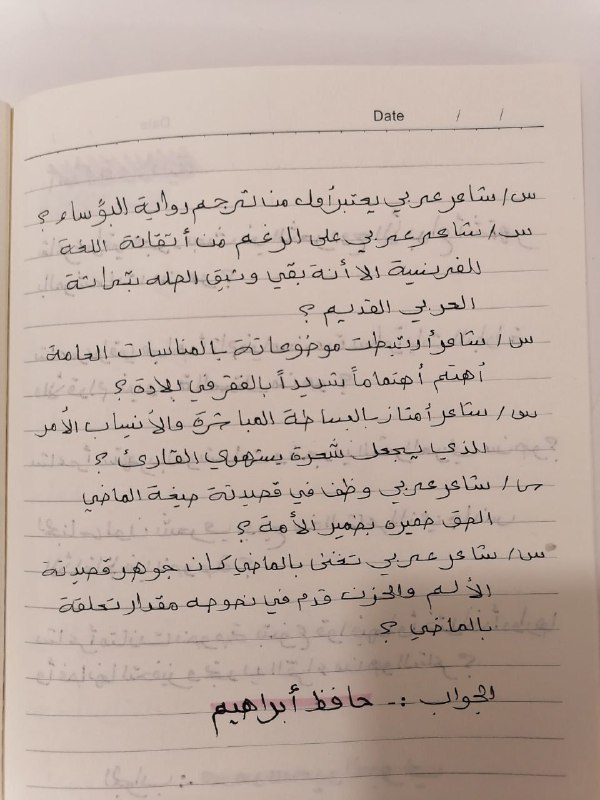 Date / /
س/ شاعر عربي يعتبر أول من ترجم رواية البؤساء ؟
س/ شاعر عربي على الرغم من أتقانة اللغة
للفرنسية الا أنة بقي وثيق الصله بتراثة
العربي القديم ؟
س/ شاعر أرتبطت موضوعاتة بالمناسبات العامة
أهتم أهتماماً شديداً بالفقر في بلادة ؟
س/ شاعر أمتاز بالبساطة المباشرة والأنسياب الأمر
الذي يجعل شعرة يستهوي القارئ ؟
س/ شاعر عربي وظف في قصيدتة صيغة الماضي
الصق ضميره بضمير الأمة ؟
س/ شاعر عربي تغنى بالماضي كان جوهر قصيدتة
الألم والحزن قدم في نصوصه مقدار تعلقة
بالماضي ؟
الجواب :- حافظ أبراهيم